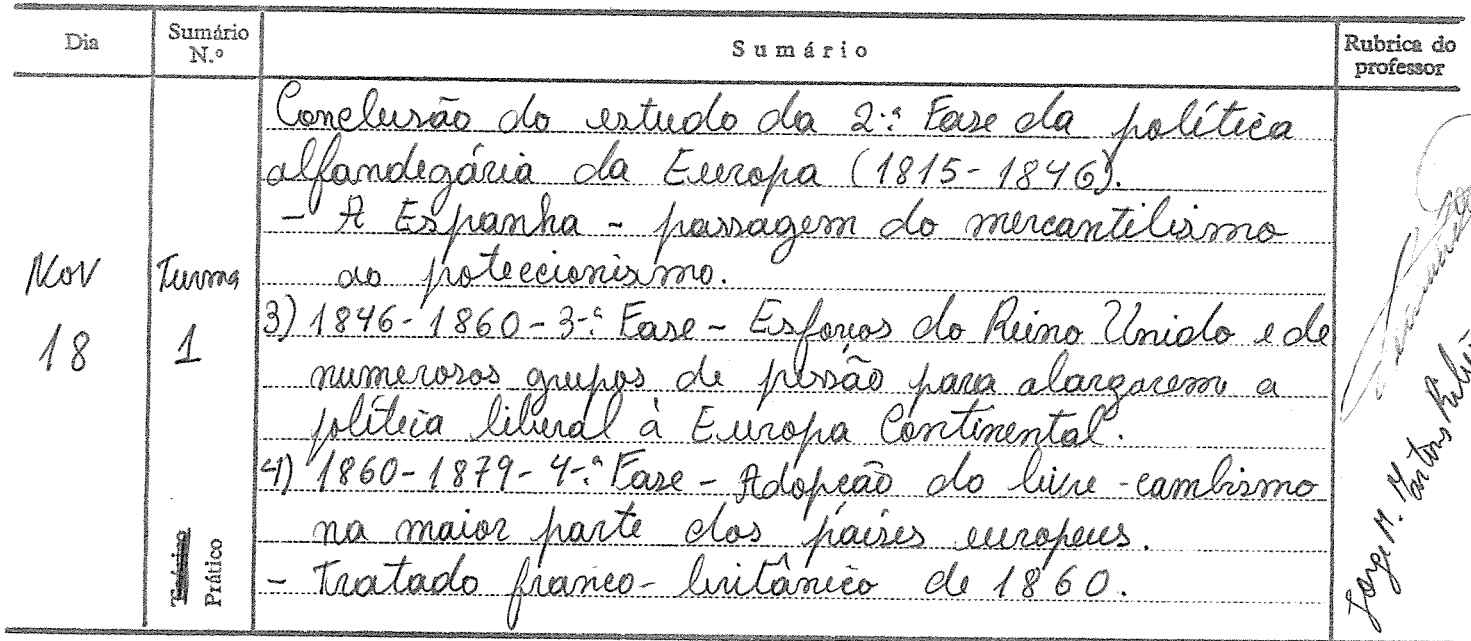 Dia
Sumário N.º
Sumário
Rubrica do professor
Nov
18
Turma
1
Prático
Conclusão do estudo da 2.ª Fase da política
alfandegária da Europa (1815-1846).
- A Espanha - passagem do mercantilismo
ao poteccionismo.
3) 1846-1860-3.ª Fase - Esforços do Reino Unido e de
numerosos grupos de pressão para alargarem a
política liberal à Europa Continental.
4) 1860-1879-4.ª Fase - Adopção do livre-cambismo
na maior parte dos países europeus.
- Tratado franco-britânico de 1860.
Jorge M. Martins